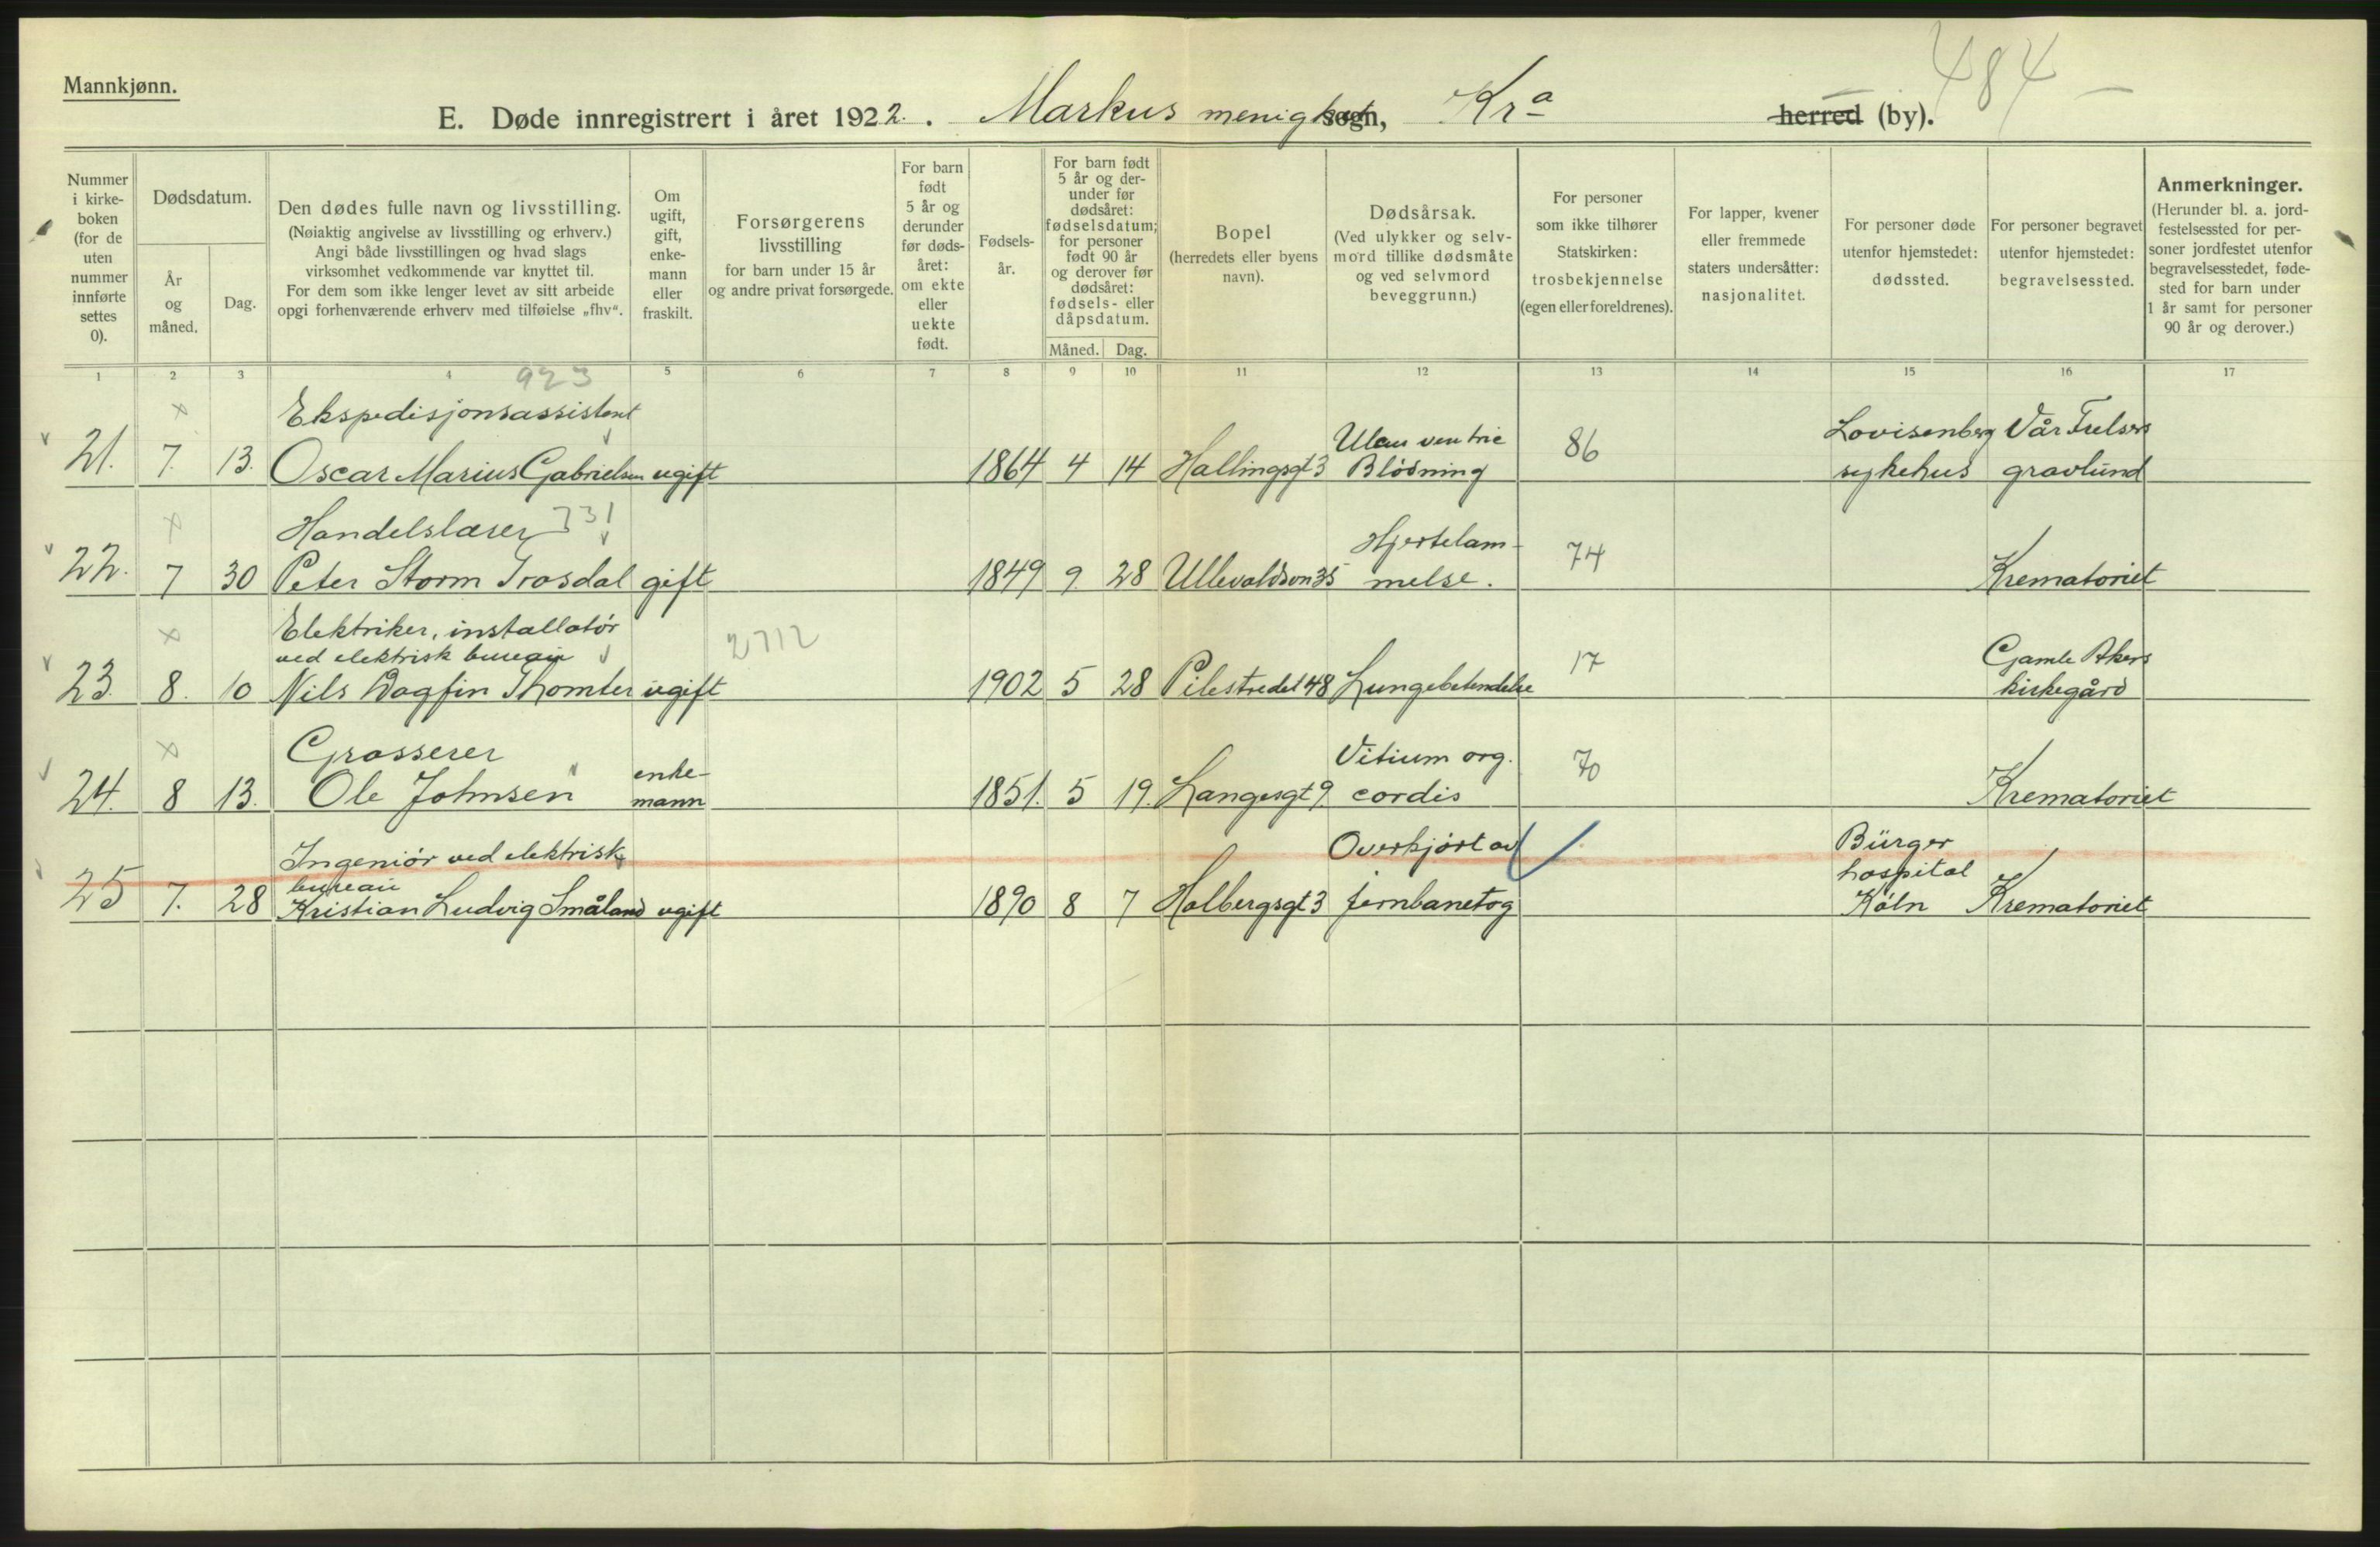 484
Mannkjønn.
E. Døde innregistrert i året 1922. Markus menighet sogn, Kra herred (by).
Nummer i kirkeboken (for de uten nummer innførte settes 0).
Dødsdatum.
År og måned.
Dag.
Den dødes fulle navn og livsstilling.
(Nøiaktig angivelse av livsstilling og erhverv.)
Angi både livsstillingen og hvad slags
virksomhet vedkommende var knyttet til.
For dem som ikke lenger levet av sitt arbeide
opgi forhenværende erhverv med tilføielse „fhv“.
Om ugift, gift, enkemann eller fraskilt.
Forsørgerens livsstilling
for barn under 15 år
og andre privat forsørgede.
For barn født 5 år og derunder før dødsåret: om ekte eller uekte født.
Fødselsår.
For barn født 5 år og derunder før dødsåret: fødselsdatum; for personer født 90 år og derover før dødsåret: fødsels- eller dåpsdatum.
Måned. Dag.
Bopel
(herredets eller byens navn).
Dødsårsak.
(Ved ulykker og selvmord tillike dødsmåte og ved selvmord beveggrunn.)
For personer som ikke tilhører Statskirken: trosbekjennelse (egen eller foreldrenes).
For lapper, kvener eller fremmede staters undersåtter: nasjonalitet.
For personer døde utenfor hjemstedet: dødssted.
For personer begravet utenfor hjemstedet: begravelsessted.
Anmerkninger.
(Herunder bl. a. jordfestelsessted for personer jordfestet utenfor begravelsesstedet, fødested for barn under 1 år samt for personer 90 år og derover.)
1 2 3 4 5 6 7 8 9 10 11 12 13 14 15 16 17
923
Ekspedisjonsassistent
21. 7. 13. Oscar Marius Gabrielsen ugift 1864 4 14 Hallingsgt 3 Ulcus ventric Blødning 86 Lovisenberg sykehus Vår Frelsers gravlund
Handelslærer 731
22. 7 30 Peter Storm Trosdal gift 1849 9 28 Ullevaldsvn 35 Hjertelammelse. 74 Krematoriet
Elektriker, installatør
ved elektrisk bureau 2712
23. 8. 10 Nils Dagfin Thomter ugift 1902 5 28 Pilestredet 48 Lungebetendelse 17 Gamle Akers kirkegård
Grosserer
24. 8 13. Ole Johnsen enkemann 1851. 5 19. Langesgt 9 Vitium org. cordis 70 Krematoriet
Ingeniør ved elektrisk
bureau
25 7. 28 Kristian Ludvig Småland ugift 1890 8 7 Holbergsgt 3 Overkjørt av jernbanetog Bürger hospital Köln Krematoriet